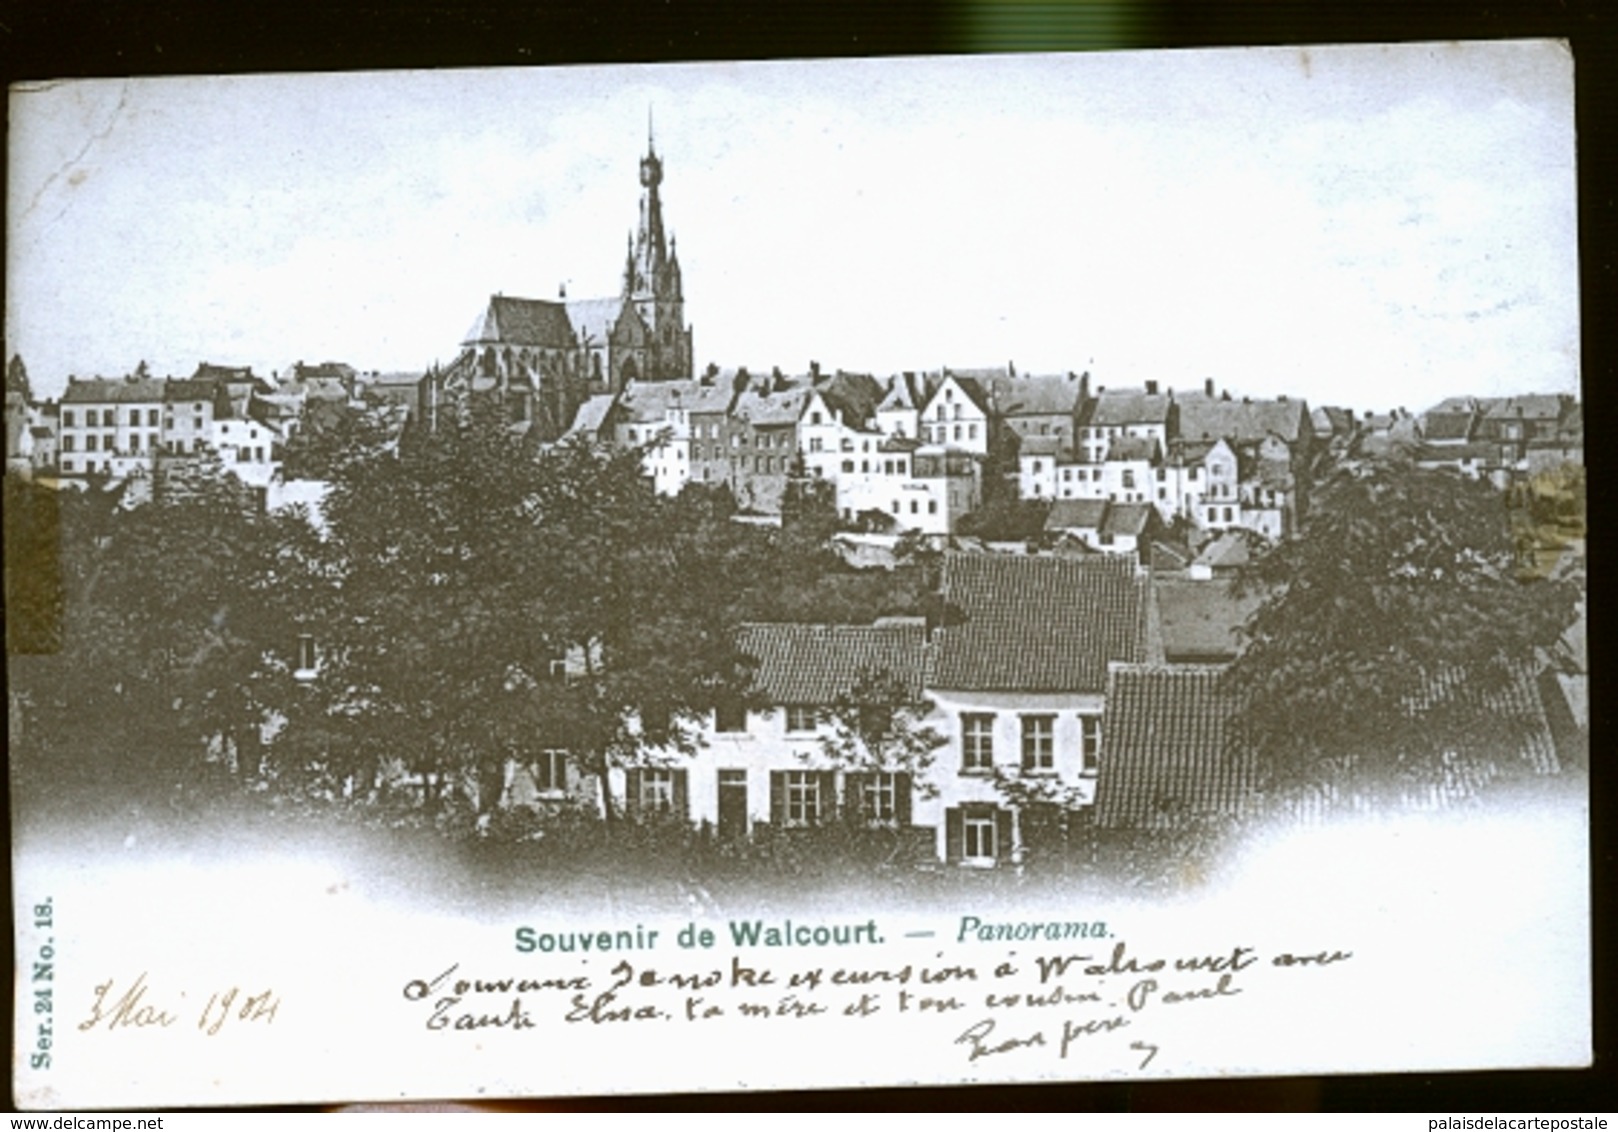 Souvenir de Walcourt. — Panorama.
Souvenir de notre excursion à Walcourt avec
Tante Elisa. ta mère et ton cousin. Paul
Ton père
3 Mai 1904
Ser. 24 No. 18.
www.delcampe.net
palaisdelacartepostale